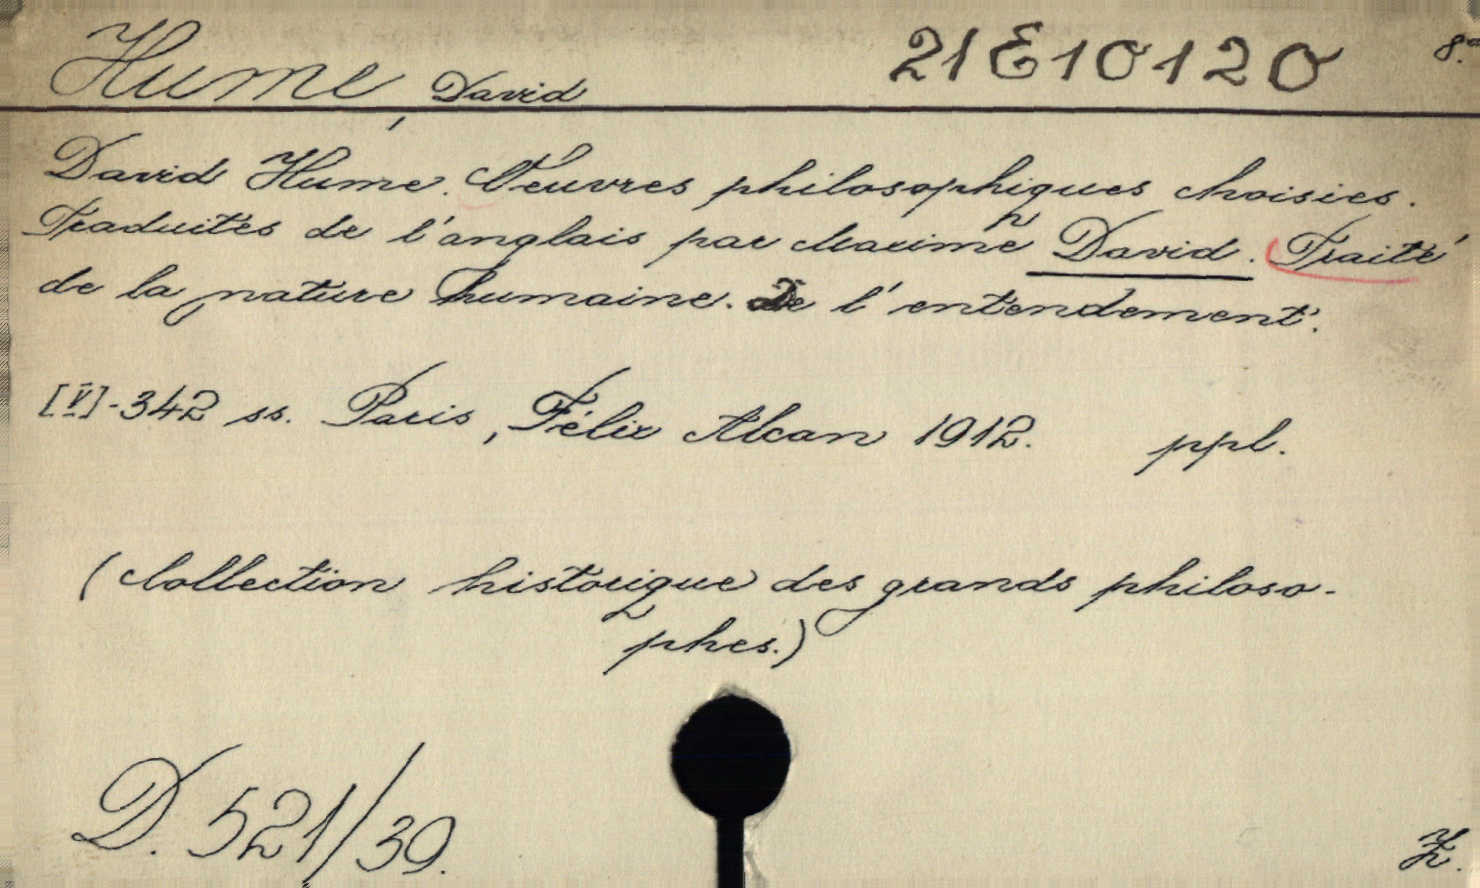 Hume David 21E10120 8.°
David Hume. Oeuvres philosophiques choisies.
Traduites de l'anglais par Maxime David. Traité
de la nature humaine. De l'entendement.
[V]-342 ss. Paris, Félix Alcan 1912. ppl.
(Collection historique des grands philoso-
phes.)
D. 521/39.